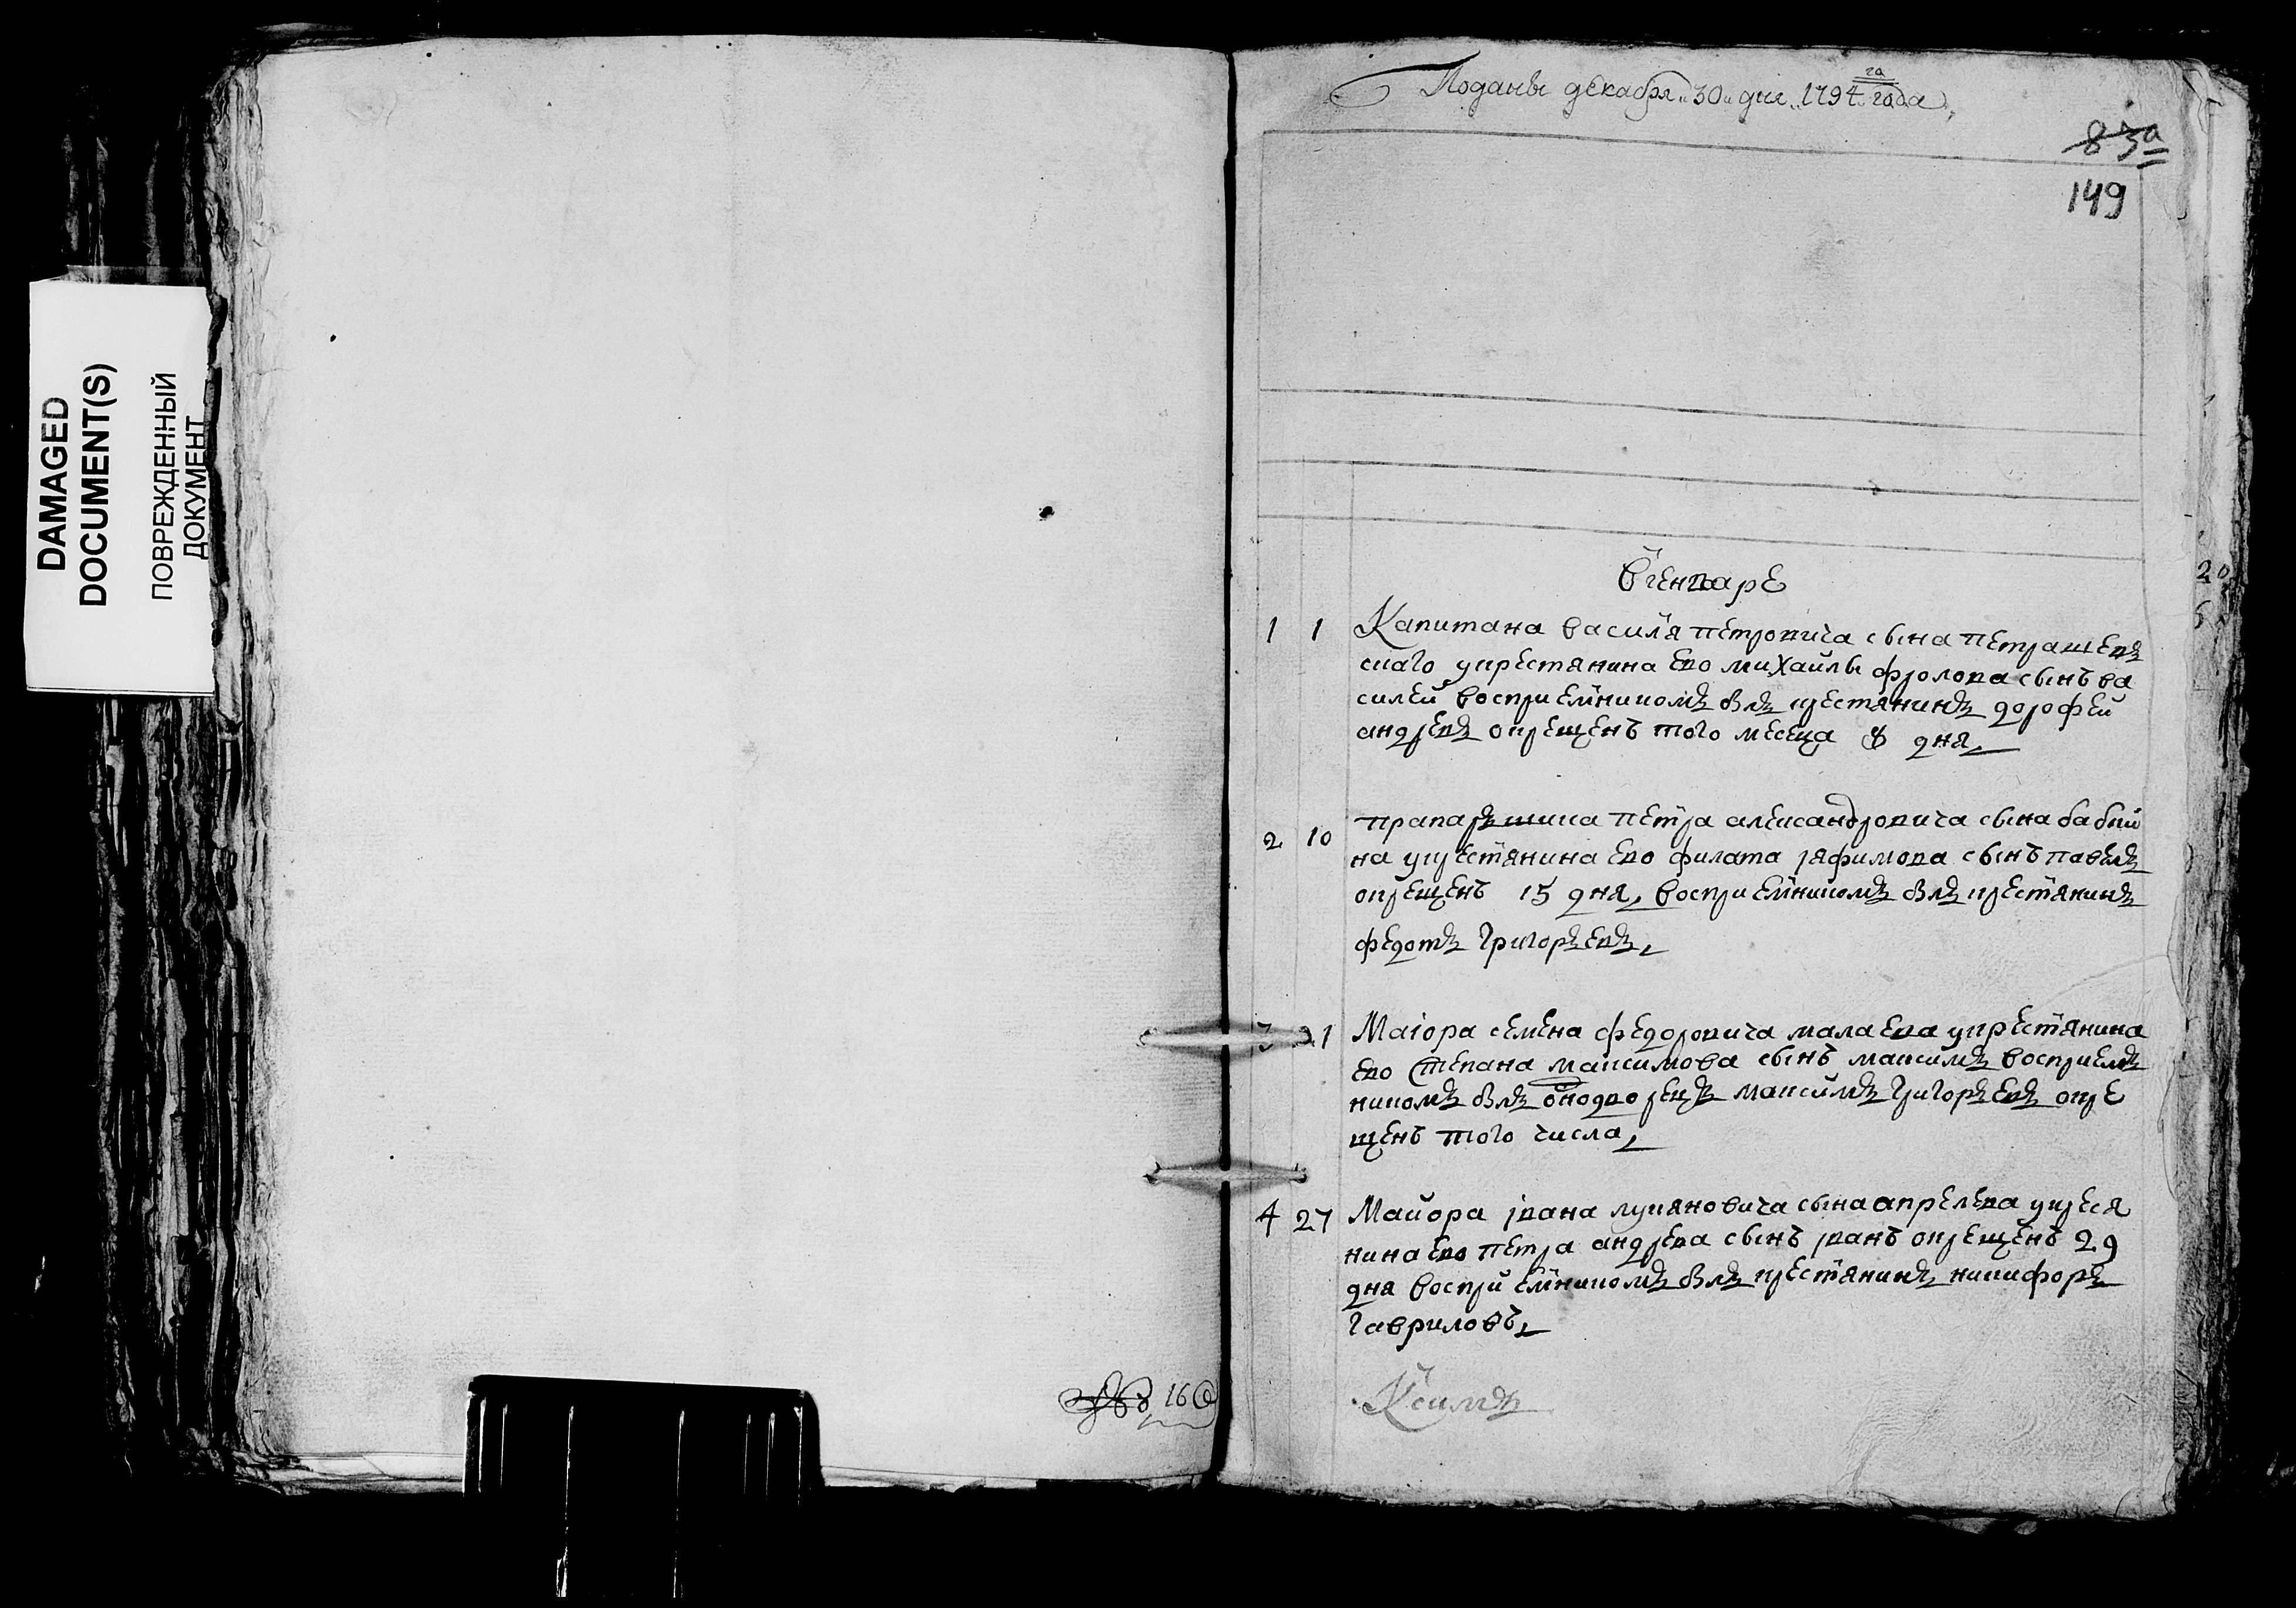 DAMAGED
DOCUMENT(S)
ПОВРЕЖДЕННЫЙ
ДОКУМЕНТ
160
Поданы декабря 30 дня 1794 га года
83а
149
В генваре
1 1 Капитана василя петровича сына петрашевъ
скаго укрестянина ево михайлы фролова сынъ ва
силей восприемникомъ былъ крестянинъ дорофей
андревъ окрещенъ того месеца 8 дня
2 10 прапаръшика петра александровича сына бабки
на укрестянина ево филата яфимова сынъ павелъ
окрещенъ 15 дня восприемникомъ былъ крестянинъ
федотъ григоръевъ
3 21 Маiора семена федоровича малаева укрестянина
ево степана максимова сынъ максимъ восприемъ
никомъ былъ однодворецъ максимъ григоръевъ окре
щенъ того числа
4 27 Майора iвана лукяновича сына апрелева укреся
нина ево петра андрева сынъ iванъ окрещенъ 29
дня восприемникомъ былъ крестянинъ никифоръ
гавриловъ